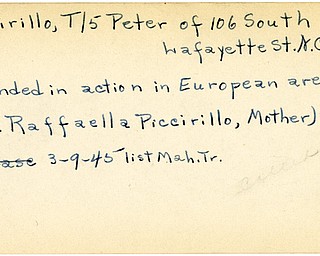 irillo, T/5 Peter of 106 South
Lafayette St. N.C
nded in action in European are
. Raffaella Piccirillo, Mother)
ase 3-9-45 list Mah. Tr.